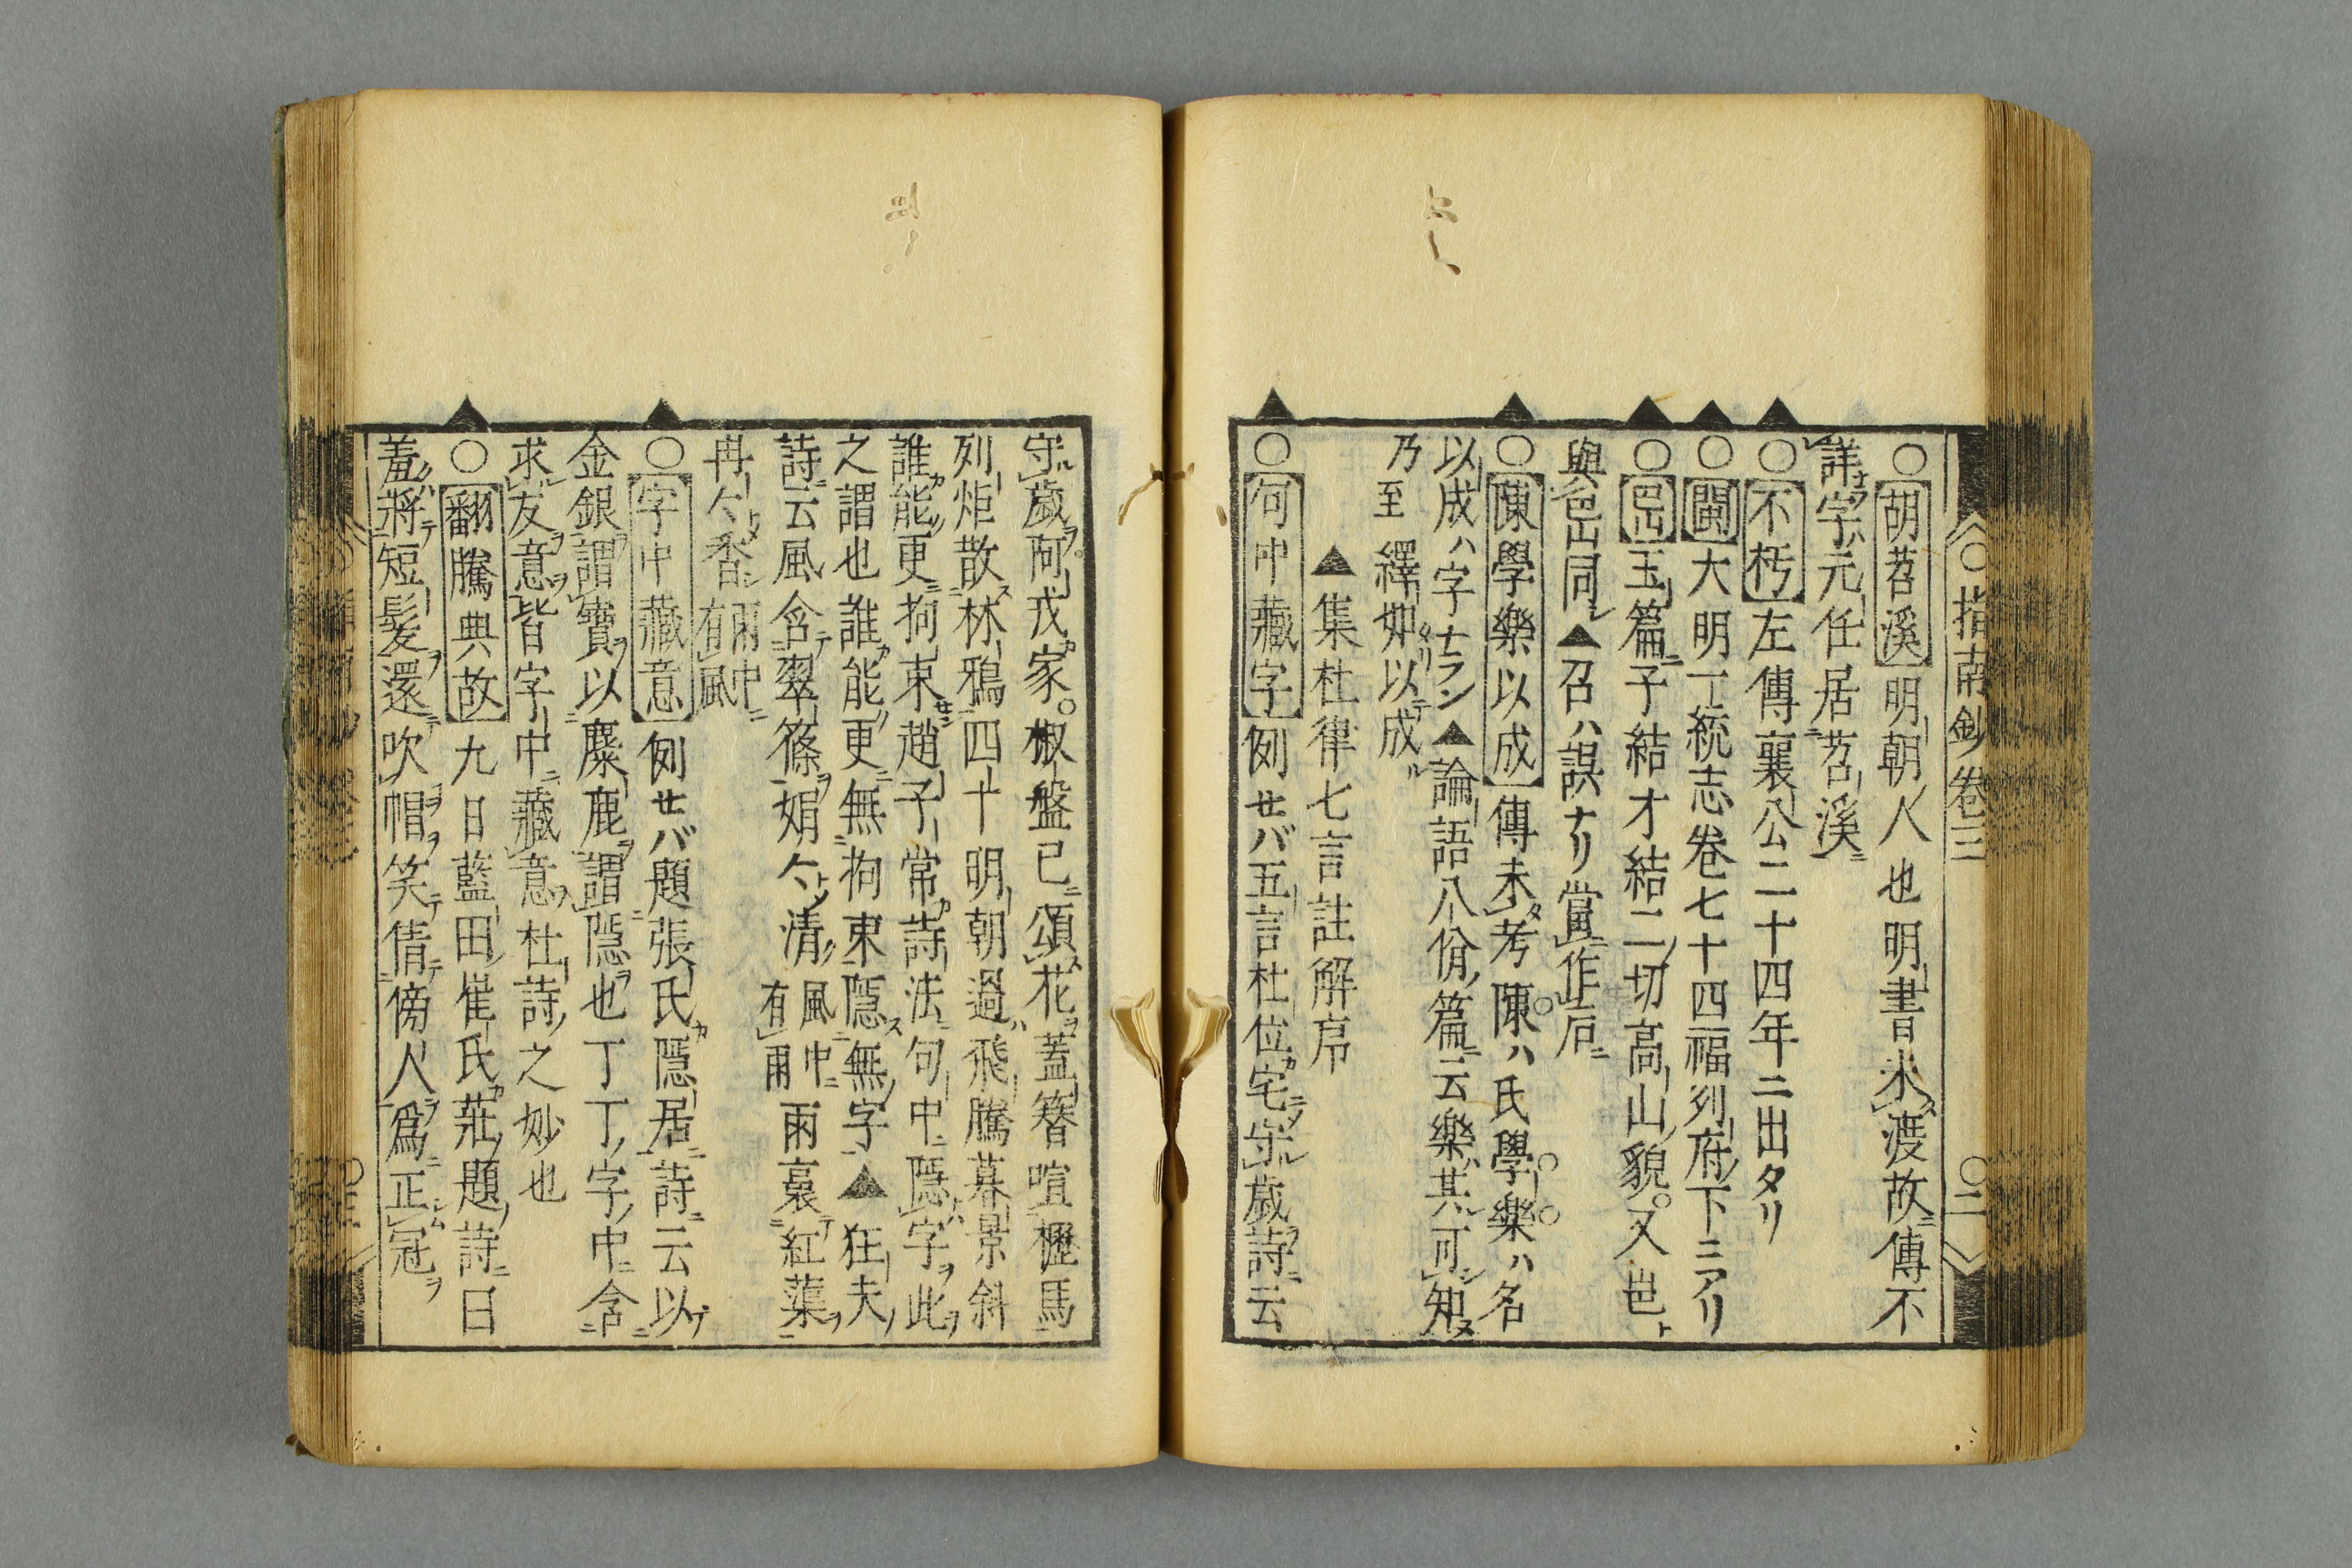 指南鈔卷三
〇二
〇胡苕溪明朝ノ人也明書未渡故傳不
詳字ハ元任居苕溪ニ
〇不朽左傳襄公二十四年ニ出タリ
〇閩大明一統志卷七十四福州府ノ下ニアリ
〇岊玉篇ニ子結才結二ノ切高山ノ貌又岜ト
與岊同▲召ハ誤ナリ當作后
〇陳學樂以成傳未考陳ハ氏學樂ハ名
以成ハ字ナラン▲論語八佾ノ篇ニ云樂ハ其可知
乃至 繹如以成
▲集杜律七言註解序
〇句中藏字例セバ五言杜位宅守歲詩云
守歲阿戎家椒盤已頌花蓋簪喧櫪馬
列炬散林鴉四十明朝過飛騰暮景斜
誰能更拘束趙子常詩法句中隱字此
之謂也誰能更無拘束隱無字▲狂夫
詩云風含翠篠娟々清風中有雨雨裛紅蕖
冉々香雨中有風
〇字中藏意例セバ題張氏隱居詩云以
金銀謂寶以麋鹿謂隱也丁丁ノ字ノ中含
求友意皆字中藏意杜詩ノ之妙也
〇翻騰典故九日藍田崔氏莊題詩曰
羞將短髮還吹帽笑倩傍人爲正冠